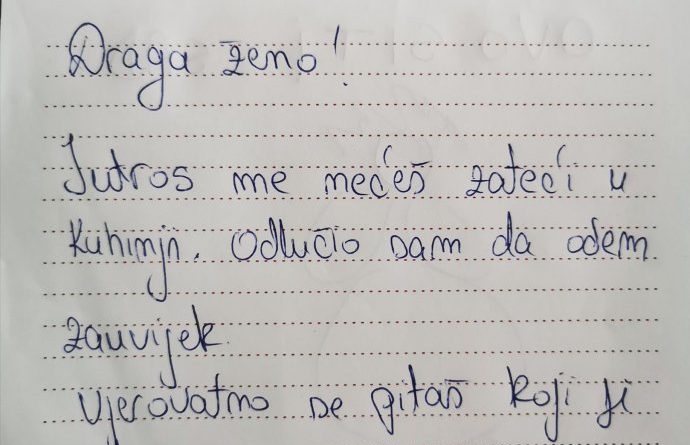 Draga ženo!
Jutros me nećeš zateći u
kuhinji. Odlučio sam da odem
zauvijek.
Vjerovatno se pitaš koji je